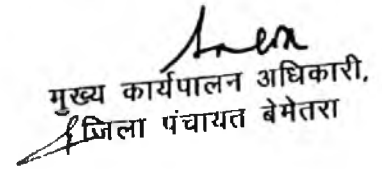 मुख्य कार्यपालन अधिकारी,
जिला पंचायत बेमेतरा